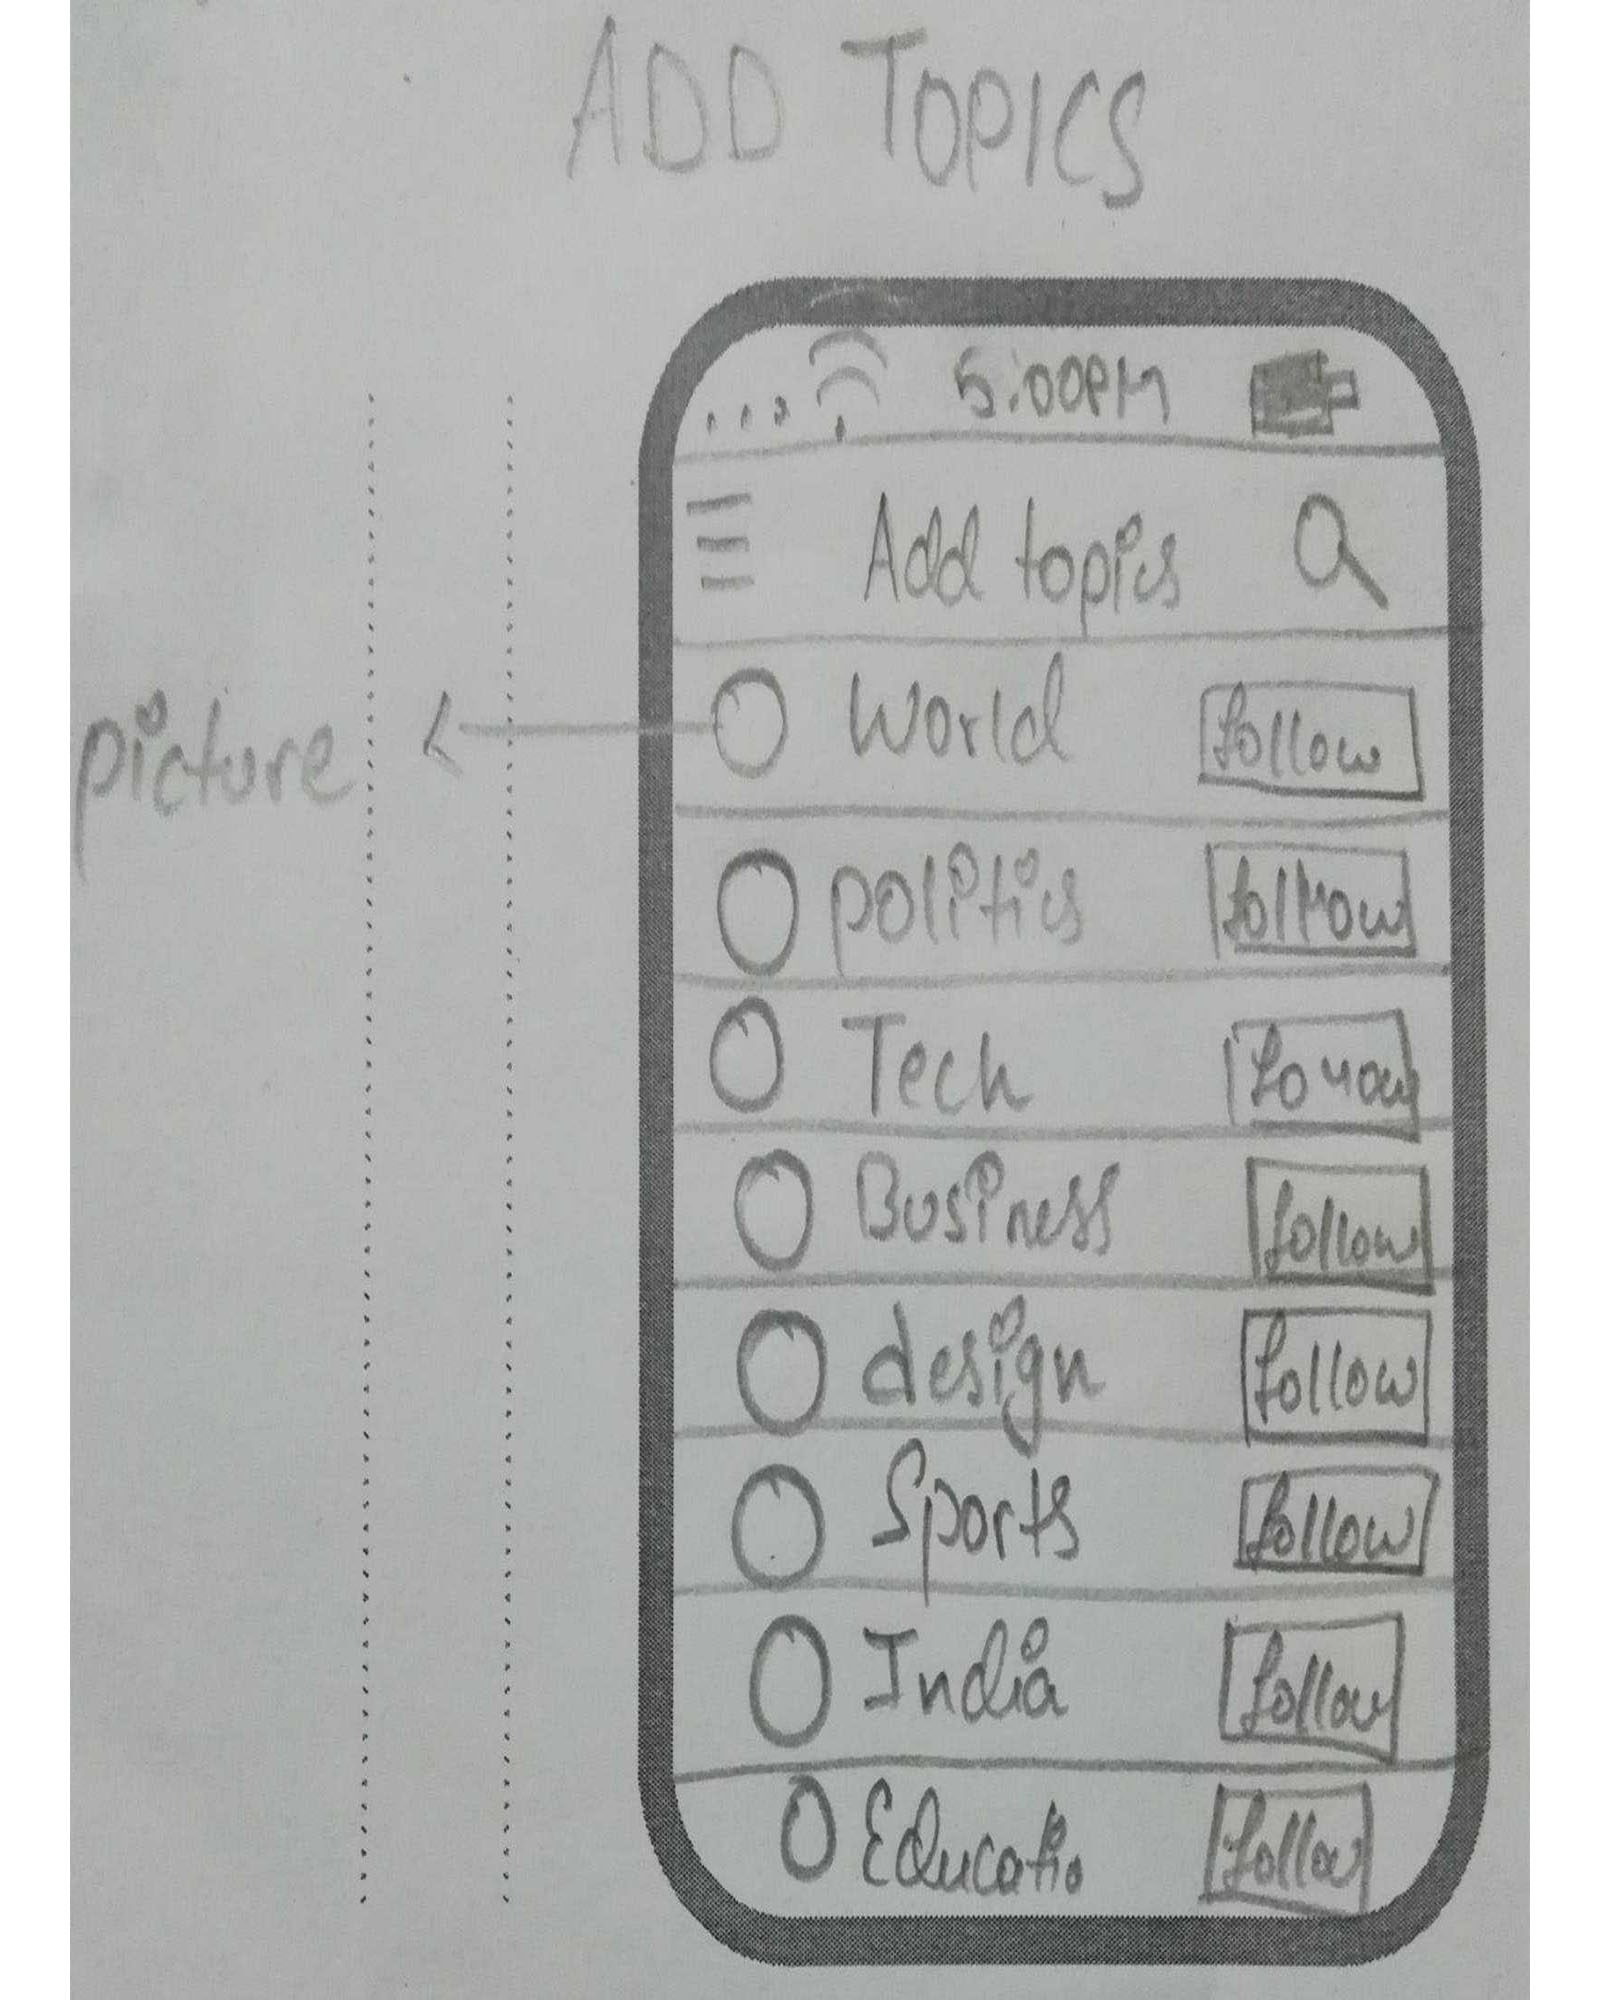 ADD TOPICS
5:00PM
Add topics
World follow
picture
politics follow
Tech follow
Business follow
design follow
Sports follow
India follow
Educatio follow